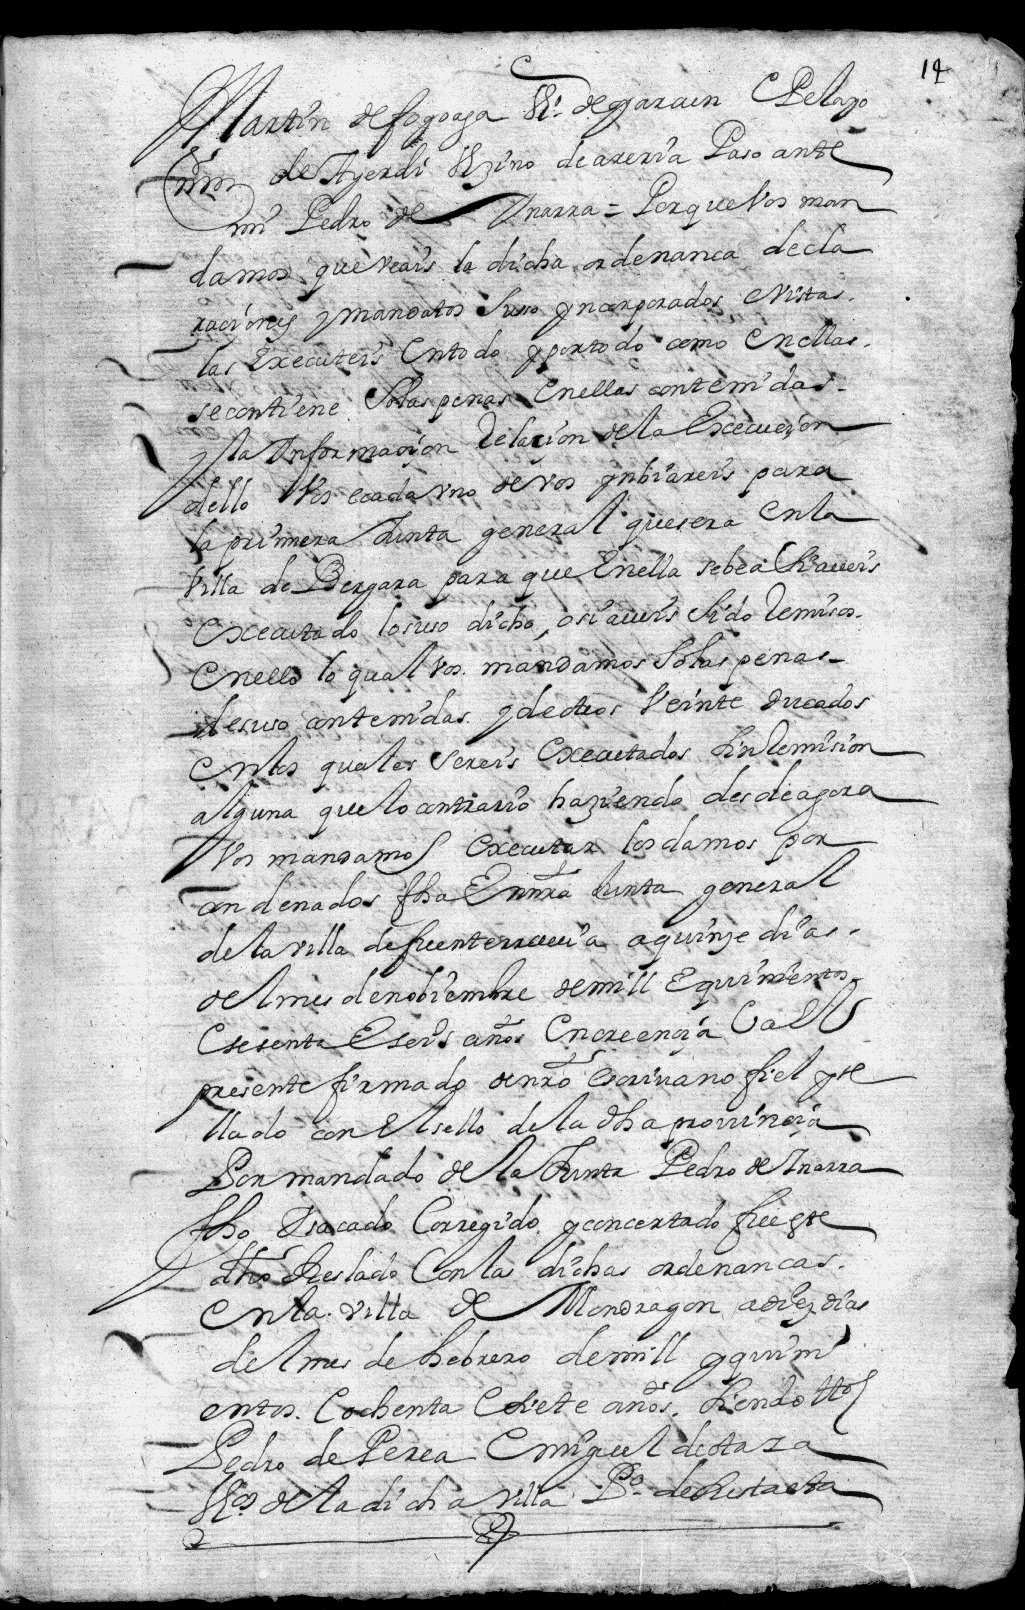 14
Martin de fogoaga Vº de garauen e Pelayo
de Ayerdi Vezino de areria Paso ante
mi Pedro de Ynarra = Porque Vos man
damos que veais la dicha ordenança decla
raçiones y mandatos suso yncorporados e Vistas
las Executeis en todo y por todo como en ellas
se contiene so las penas en ellas contenidas
y la Informaçion Relaçion de la Execuçion
dello Vos e cada vno de vos ynbiareis para
la primera Junta general que sera en la
Villa de Bergara para que En ella se bea si aueis
executado lo suso dicho, o si aueis sido Remisos
en ello lo qual vos mandamos so las penas
de suso contenidas y de otros Veinte ducados
en los quales sereis executados sin Remision
alguna que lo contrario haziendo desde agora
Vos mandamos executar los damos por
condenados fha En nra Junta general
de la villa de fuenterrauia a quinze dias
del mes de nobiembre de mill E quinientos
e sesenta E seis años en creençia
presente firmado de nro escriuano fiel y se
llado con el sello de la dha prouinçia
Por mandado de la Junta Pedro de Ynarra
fho sacado Corregido y concertado fue este
dho treslado Con las dichas ordenancas
en la villa de Mondragon a diez dias
del mes de hebrero de mill y quini
entos e ochenta e siete años siendo tos
Pedro de Perea e miguel de otaza
Vºs de la dicha villa Pº de